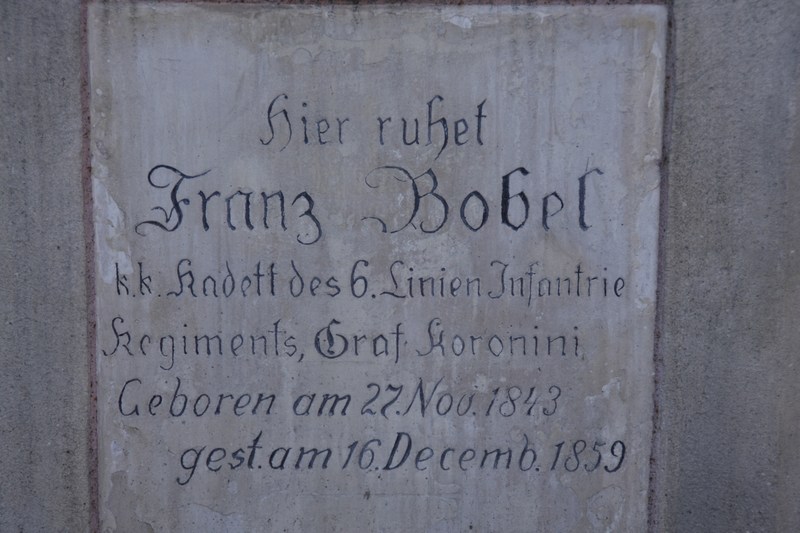 Hier ruhet
Franz Bobel
k.k. Kadett des 6. Linien Infantrie
Regiments, Graf Koronini
Geboren am 27. Nov. 1843
gest. am 16. Decemb. 1859